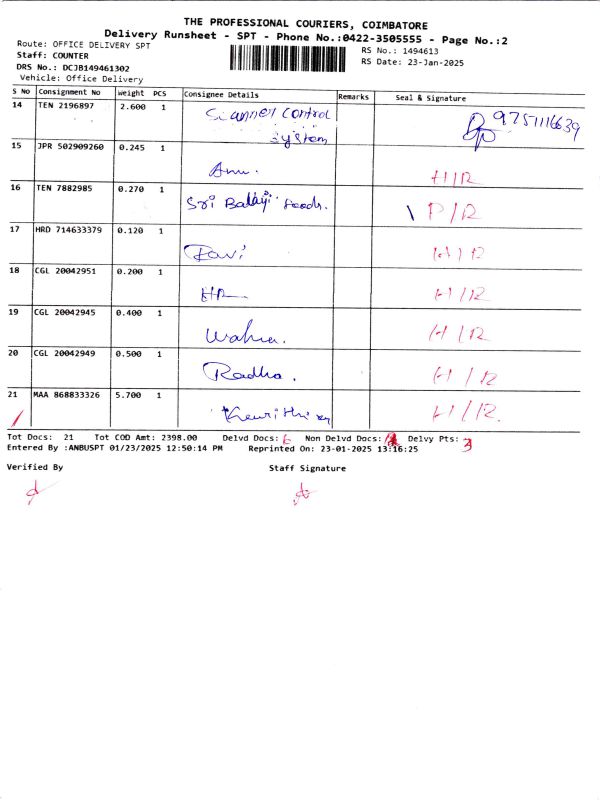 THE PROFESSIONAL COURIERS, COIMBATORE
Delivery Runsheet - SPT - Phone No.:0422-3505555 - Page No.:2
Route: OFFICE DELIVERY SPT
Staff: COUNTER
DRS No.: DCJB149461302
Vehicle: Office Delivery
RS No.: 1494613
RS Date: 23-Jan-2025
S No Consignment No Weight PCS Consignee Details Remarks Seal & Signature
14 TEN 2196897 2.600 1 Scanner Control 9751116639
System
15 JPR 502909260 0.245 1
Anu. H/R
16 TEN 7882985 0.270 1 Sri Balaji Foods. P/R
17 HRD 714633379 0.120 1
Ravi H/R
18 CGL 20042951 0.200 1
HR H/R
19 CGL 20042945 0.400 1
H/R
20 CGL 20042949 0.500 1
Radha. H/R
21 MAA 868833326 5.700 1
H/R.
Tot Docs: 21 Tot COD Amt: 2398.00 Delvd Docs: 6 Non Delvd Docs: Delvy Pts: 3
Entered By :ANBUSPT 01/23/2025 12:50:14 PM Reprinted On: 23-01-2025 13:16:25
Verified By Staff Signature